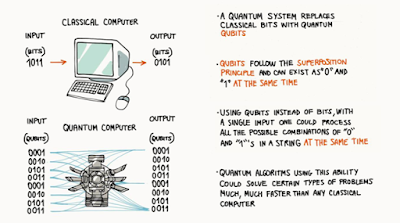 CLASSICAL COMPUTER
INPUT
OUTPUT
(BITS)
(BITS)
1011
0101
INPUT
OUTPUT
QUANTUM COMPUTER
(QUBITS)
(QUBITS)
0001
0010
0101
0011
0001
0010
0101
0011
0001
0010
0101
0011
0001
0010
0101
0011
- A QUANTUM SYSTEM REPLACES
CLASSICAL BITS WITH QUANTUM
QUBITS
- QUBITS FOLLOW THE SUPERPOSITION
PRINCIPLE AND CAN EXIST AS "0" AND
"1" AT THE SAME TIME
- USING QUBITS INSTEAD OF BITS, WITH
A SINGLE IMPUT ONE COULD PROCESS
ALL THE POSSIBLE COMBINATIONS OF "0"
AND "1"'S IN A STRING AT THE SAME TIME
- QUANTUM ALGORITMS USING THIS ABILITY
COULD SOLVE CERTAIN TYPES OF PROBLEMS
MUCH, MUCH FASTER THAN ANY CLASSICAL
COMPUTER